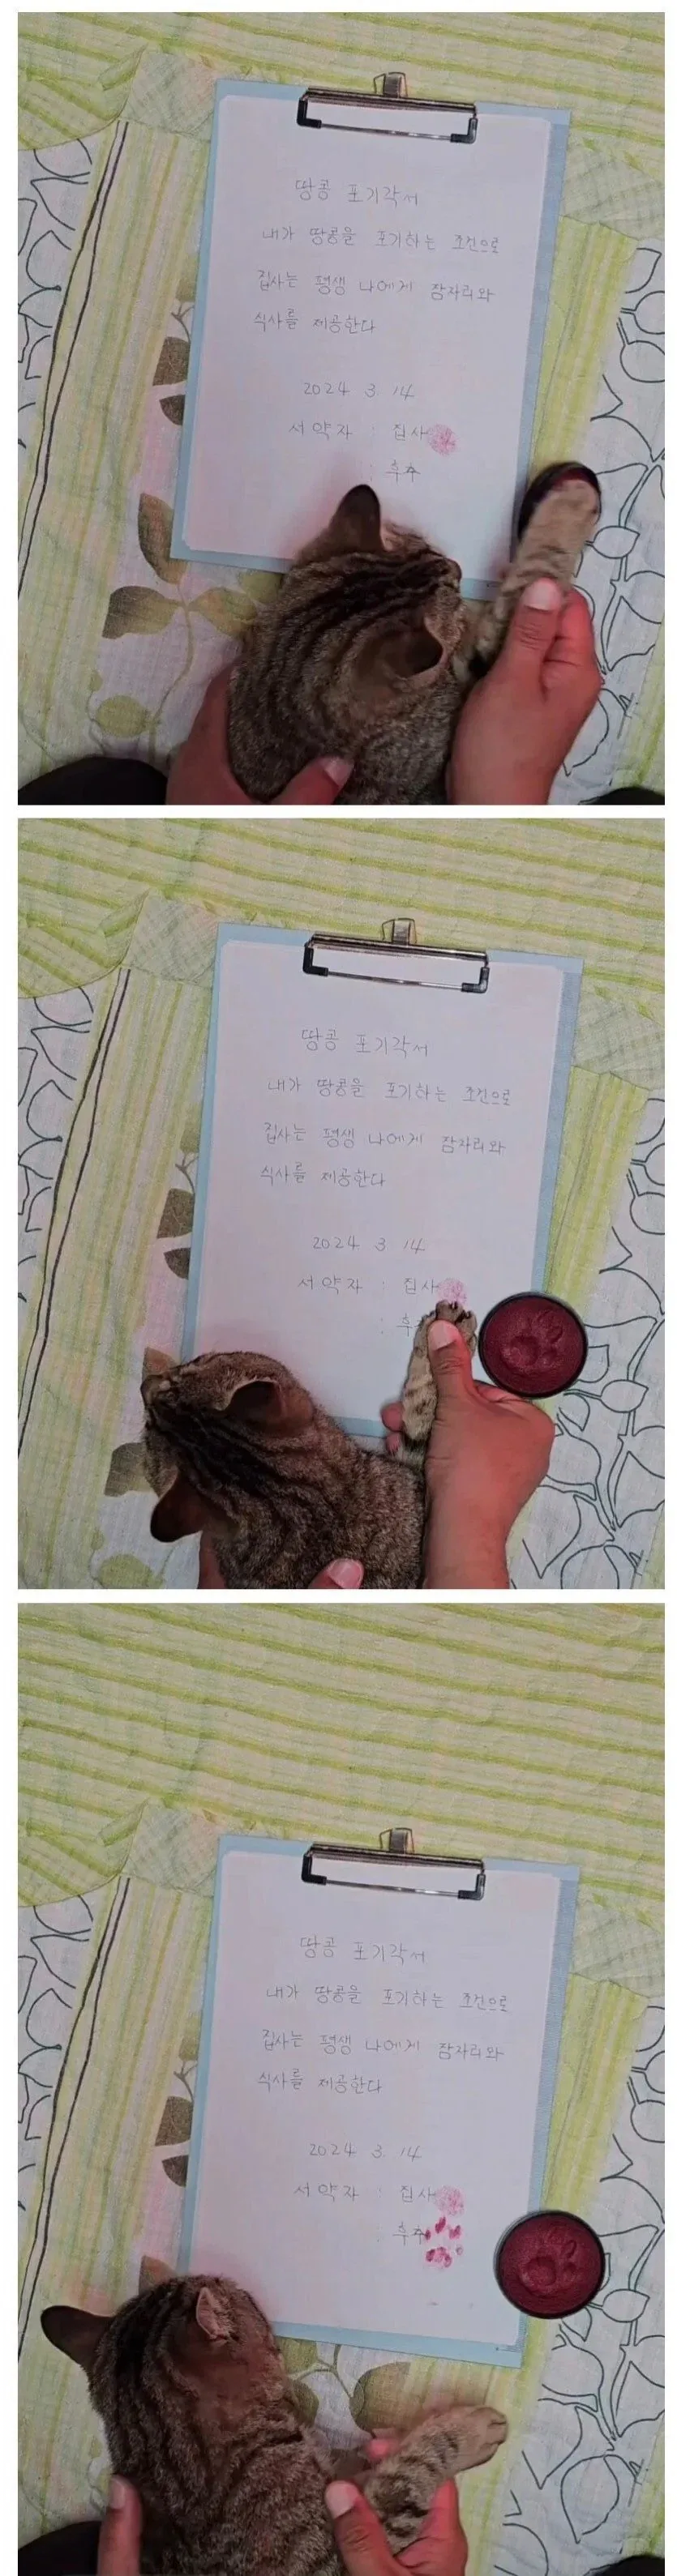 땅콩 포기각서
내가 땅콩을 포기하는 조건으로
집사는 평생 나에게 잠자리와
식사를 제공한다
2024 3 14
서약자 : 집사
: 후추
땅콩 포기각서
내가 땅콩을 포기하는 조건으로
집사는 평생 나에게 잠자리와
식사를 제공한다
2024 3 14
서약자 : 집사
: 후
땅콩 포기각서
내가 땅콩을 포기하는 조건으로
집사는 평생 나에게 잠자리와
식사를 제공한다
2024 3. 14
서약자 : 집사
: 후추